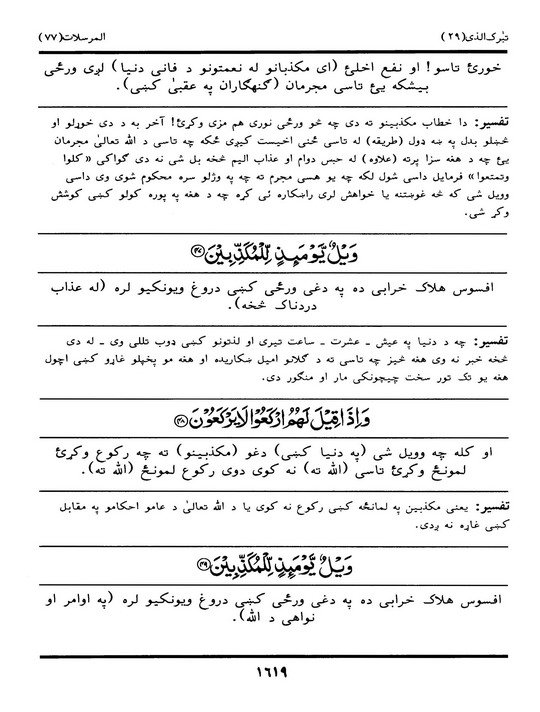 تبٰرک الذی(۲۹) المرسلات(۷۷)
خورئ تاسو! او نفع اخلئ (ای مکذبانو له نعمتونو د فانی دنیا) لږی ورځی
بیشکه یئ تاسی مجرمان (گنهگاران په عقبیٰ کښی).
تفسیر: دا خطاب مکذبینو ته دی چه څو ورځی نوری هم مزی وکړئ! آخر به د دی خوړلو او
څښلو بدل په ښه ډول (طریقه) له تاسی ځنی اخیست کیږی ځکه چه تاسی د الله تعالیٰ مجرمان
یئ چه د هغه سزا پرته (علاوه) له حبس دوام او عذاب الیم څخه بل شی نه دی گواکی «کلوا
وتمتعوا» فرمایل داسی شول لکه چه یو هسی مجرم ته چه په وژلو سره محکوم شوی وی داسی
وویل شی که څه غوښتنه یا خواهش لری راښکاره ئی کړه چه د هغه په پوره کولو کښی کوشش
وکړ شی.
وَيْلٌ يَّوْمَئِذٍ لِّلْمُكَذِّبِيْنَ ﴿۴۷﴾
افسوس هلاک خرابی ده په دغی ورځی کښی دروغ ویونکیو لره (له عذاب
دردناک څخه).
تفسیر: چه د دنیا په عیش ـ عشرت ـ ساعت تیری او لذتونو کښی ډوب تللی وی ـ له دی
څخه خبر نه وی هغه څیز چه تاسی ته د گلانو امیل ښکاریده او هغه مو پخپلو غاړو کښی اچول
هغه یو تک تور سخت چیچونکی مار او منگور دی.
وَإِذَا قِيْلَ لَهُمُ ارْكَعُوْا لَا يَرْكَعُوْنَ ﴿۴۸﴾
او کله چه وویل شی (په دنیا کښی) دغو (مکذبینو) ته چه رکوع وکړئ
لمونځ وکړئ تاسی (الله ته) نه کوی دوی رکوع لمونځ (الله ته).
تفسیر: یعنی مکذبین په لمانځه کښی رکوع نه کوی یا د الله تعالیٰ د عامو احکامو په مقابل
کښی غاړه نه ږدی.
وَيْلٌ يَّوْمَئِذٍ لِّلْمُكَذِّبِيْنَ ﴿۴۹﴾
افسوس هلاک خرابی ده په دغی ورځی کښی دروغ ویونکیو لره (په اوامر او
نواهی د الله).
۱۶۱۹